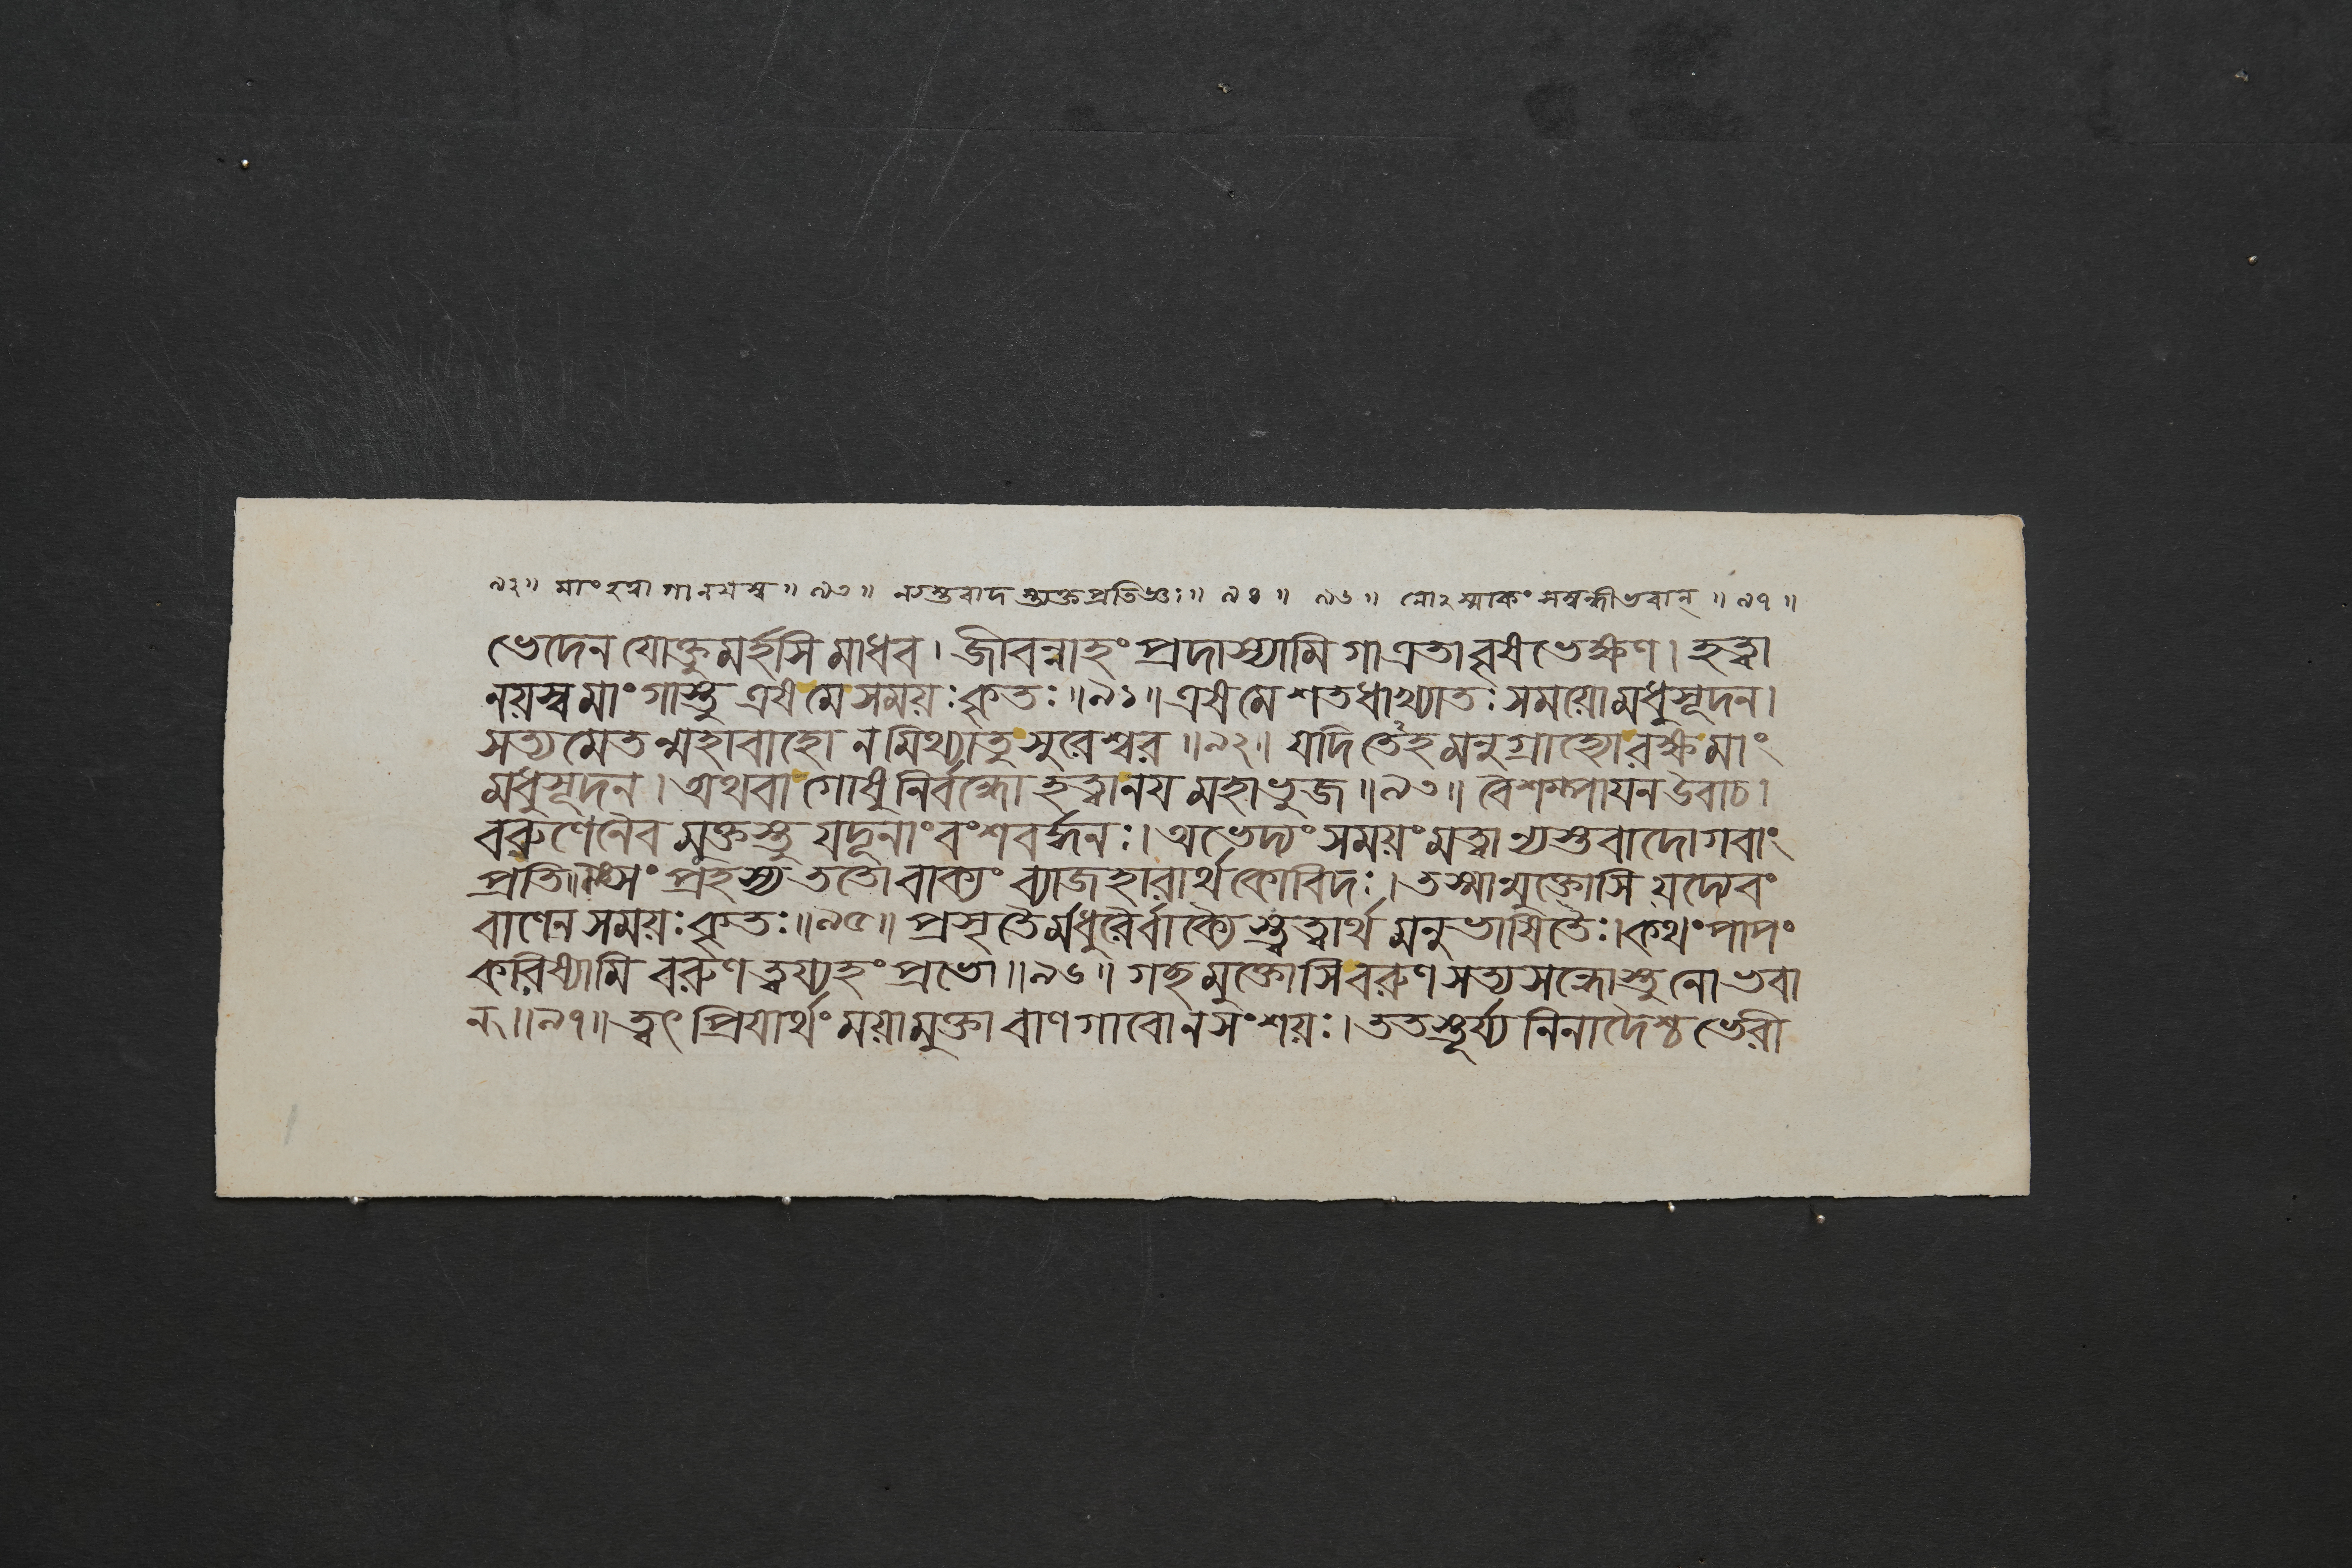 ৯২॥ মাংহত্বা গানযস্ব॥ ৯৩॥ নস্তবাদ স্ত্যক্তপ্রতিজ্ঞঃ॥ ৯৪॥ ৯৬॥ নোঽস্মাকং সম্বন্ধীভবান্॥ ৯৭॥
ভেদেন যোক্তুমর্হসি মাধব। জীবন্নাহং প্রদাস্যামি গাএতা বৃষভেক্ষণ। হত্বা
নয়স্ব মাং গাস্তু এষ মে সময়ঃ কৃতঃ॥৯১॥ এষ মে শতধাখ্যাতঃ সময়ো মধুসূদন।
সত্যমেতন্মহাবাহো ন মিথ্যাতু সুরেশ্বর॥৯২॥ যদি তেঽহমনুগ্রাহ্যো রক্ষ মাং
মধুসূদন। অথবা গোষু নির্বন্ধো হত্বানয মহাভুজ॥৯৩॥ বৈশম্পাযন উবাচ।
বরুণেনৈব মুক্তস্তু যদূনাং বংশবর্দ্ধনঃ। অভেদ্যং সময়ং মত্বা ন্যস্তবাদো গবাং
প্রতি॥ সং প্রহস্য ততো বাক্যং ব্যাজহারার্থকোবিদঃ। তস্মান্মুক্তোসি যদ্যেবং
বাণেন সময়ঃ কৃতঃ॥৯৫॥ প্রসৃতৈর্মধুরৈর্বাক্যৈস্তত্ত্বার্থ মনুভাষিতৈঃ। কথং পাপং
করিষ্যামি বরুণ ত্বয্যহং প্রভো॥৯৬॥ গচ্ছ মুক্তোসি বরুণ সত্যসন্ধোস্তু নো ভবা
ন্॥৯৭॥ ত্বৎ প্রিযার্থং ময়া মুক্তা বাণগাবো ন সংশয়ঃ। ততস্তূর্য্যনিনাদৈশ্চ ভেরী